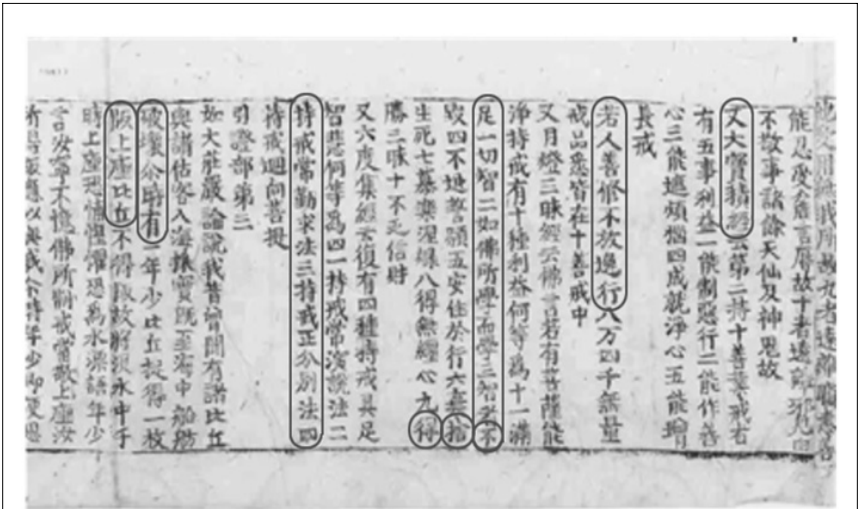 故九者遠離瞋恚
能忍受麁言辱故十者遠離邪見
不敬事諸餘天仙及神鬼故
又大寶積經云第二持十善業戒者
有五事利益一能制惡行二能作善
心三能遮煩惱四成就淨心五能增
長戒
若人善修不放逸行八万四千無量
戒品悉皆在十善戒中
又月燈三昧經云佛言若有菩薩能
淨持戒有十種利益何等爲十一滿
足一切智二如佛所學而學三智者不
毀四不退誓願五安住於行六棄捨
生死七慕樂涅槃八得無纏心九得
勝三昧十不乏信財
又六度集經云復有四種持戒具足
智慧何等爲四一持戒常演說法二
持戒常勤求法三持戒正分別法四
持戒迴向菩提
引證部第三
如大莊嚴論說我昔曾聞有諸比丘
與諸估客入海採寶既至海中船舫
破壞尒時有一年少比丘捉得一枚
板上座比丘不得板故將沒水中于
時上座恐怖惶懼恐爲水漂語年少
言汝寧不憶佛所制戒當敬上座汝
所得板應以與我尒時年少即便思